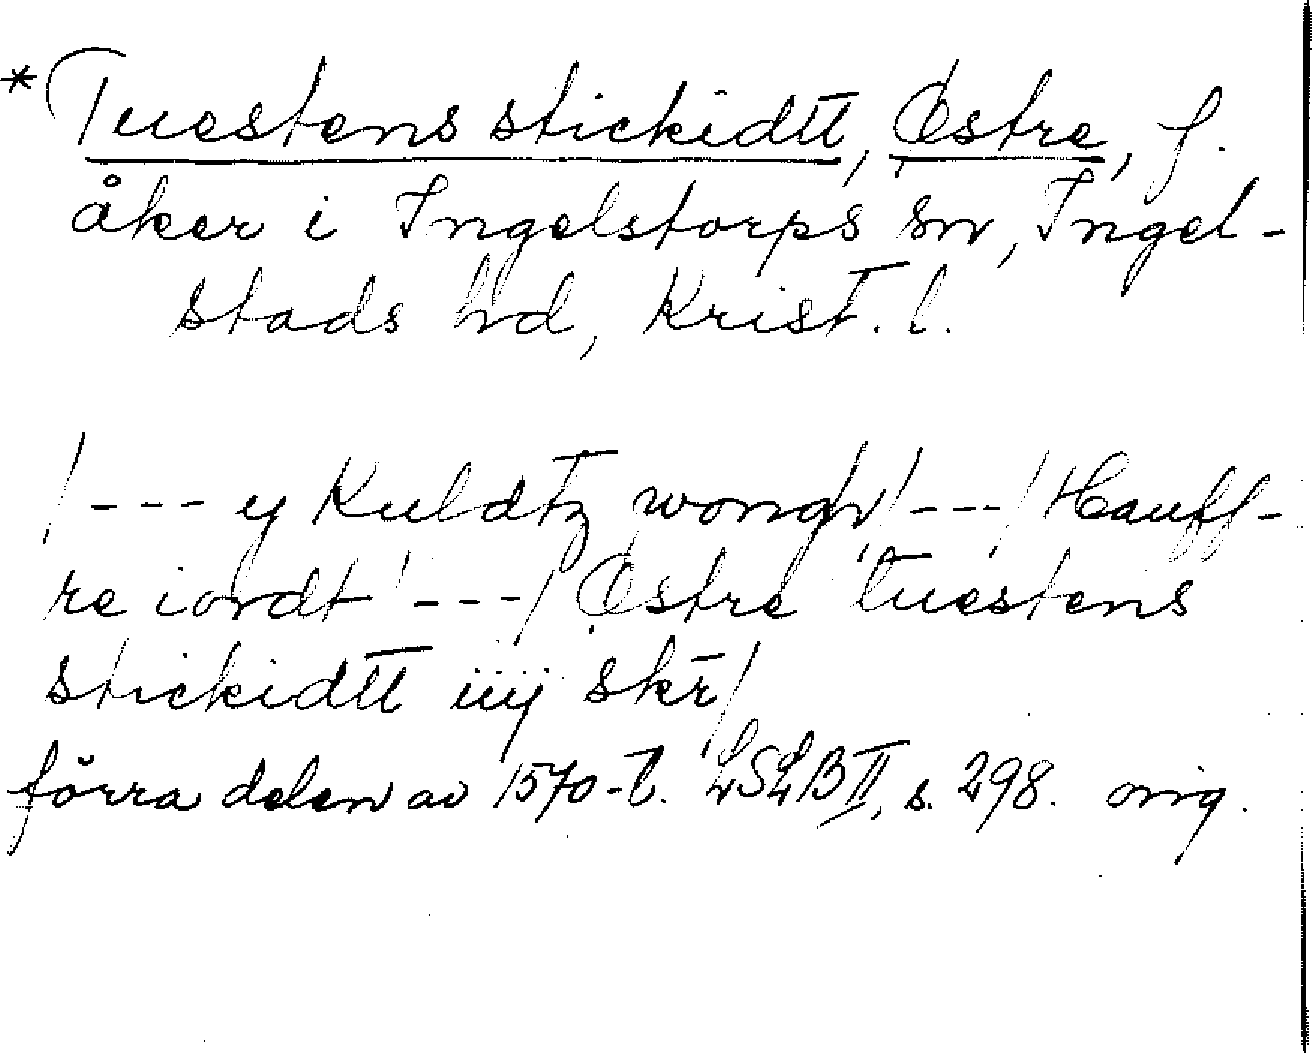 *Tuestens stickidtt, Østre, f.
åker i Ingelstorps sn, Ingel-
stads hd, Krist. l.
/--- y Kuldtz wongh/---/Hauff-
re iordt/---/Østre tuestens
stickidtt iiij skr̄/
förra delen av 1570-t. LSLB II, s. 298. orig.